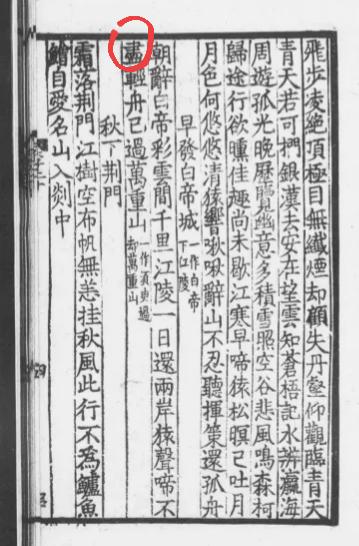 飛步凌絶頂極目無纖煙却顧失丹壑仰觀臨青天
青天若可捫銀漢去安在望雲知蒼梧記水辨瀛海
周遊孤光晚歷覽幽意多積雪照空谷悲風鳴森柯
歸途行欲曛佳趣尚未歇江寒早啼猿松暝已吐月
月色何悠悠清猿響啾啾辭山不忍聽揮策還孤舟
早發白帝城一作白帝下江陵
朝辭白帝彩雲間千里江陵一日還兩岸猿聲啼不
盡輕舟已過萬重山一作須臾過却萬重山
秋下荆門
霜落荆門江樹空布帆無恙挂秋風此行不爲鱸魚
鱠自愛名山入剡中